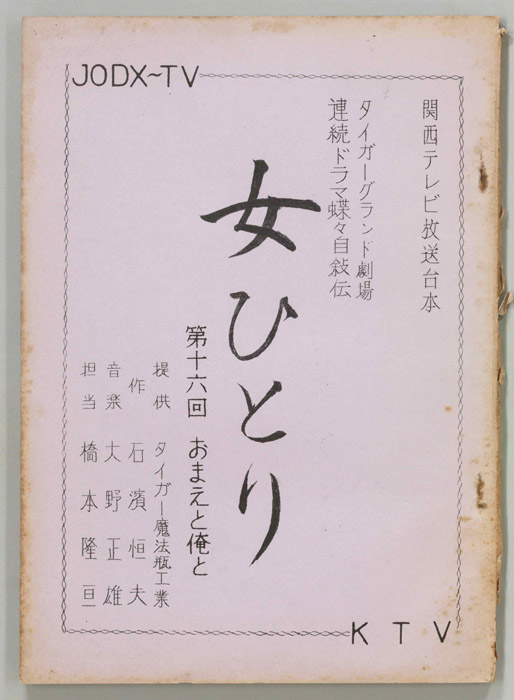 JODX~TV
関西テレビ放送台本
タイガーグランド劇場
連続ドラマ蝶々自敍伝
女ひとり
第十六回 おまえと俺と
提供 タイガー魔法瓶工業
作 石濱恒夫
音楽 大野正雄
担当 橋本隆亘
KTV